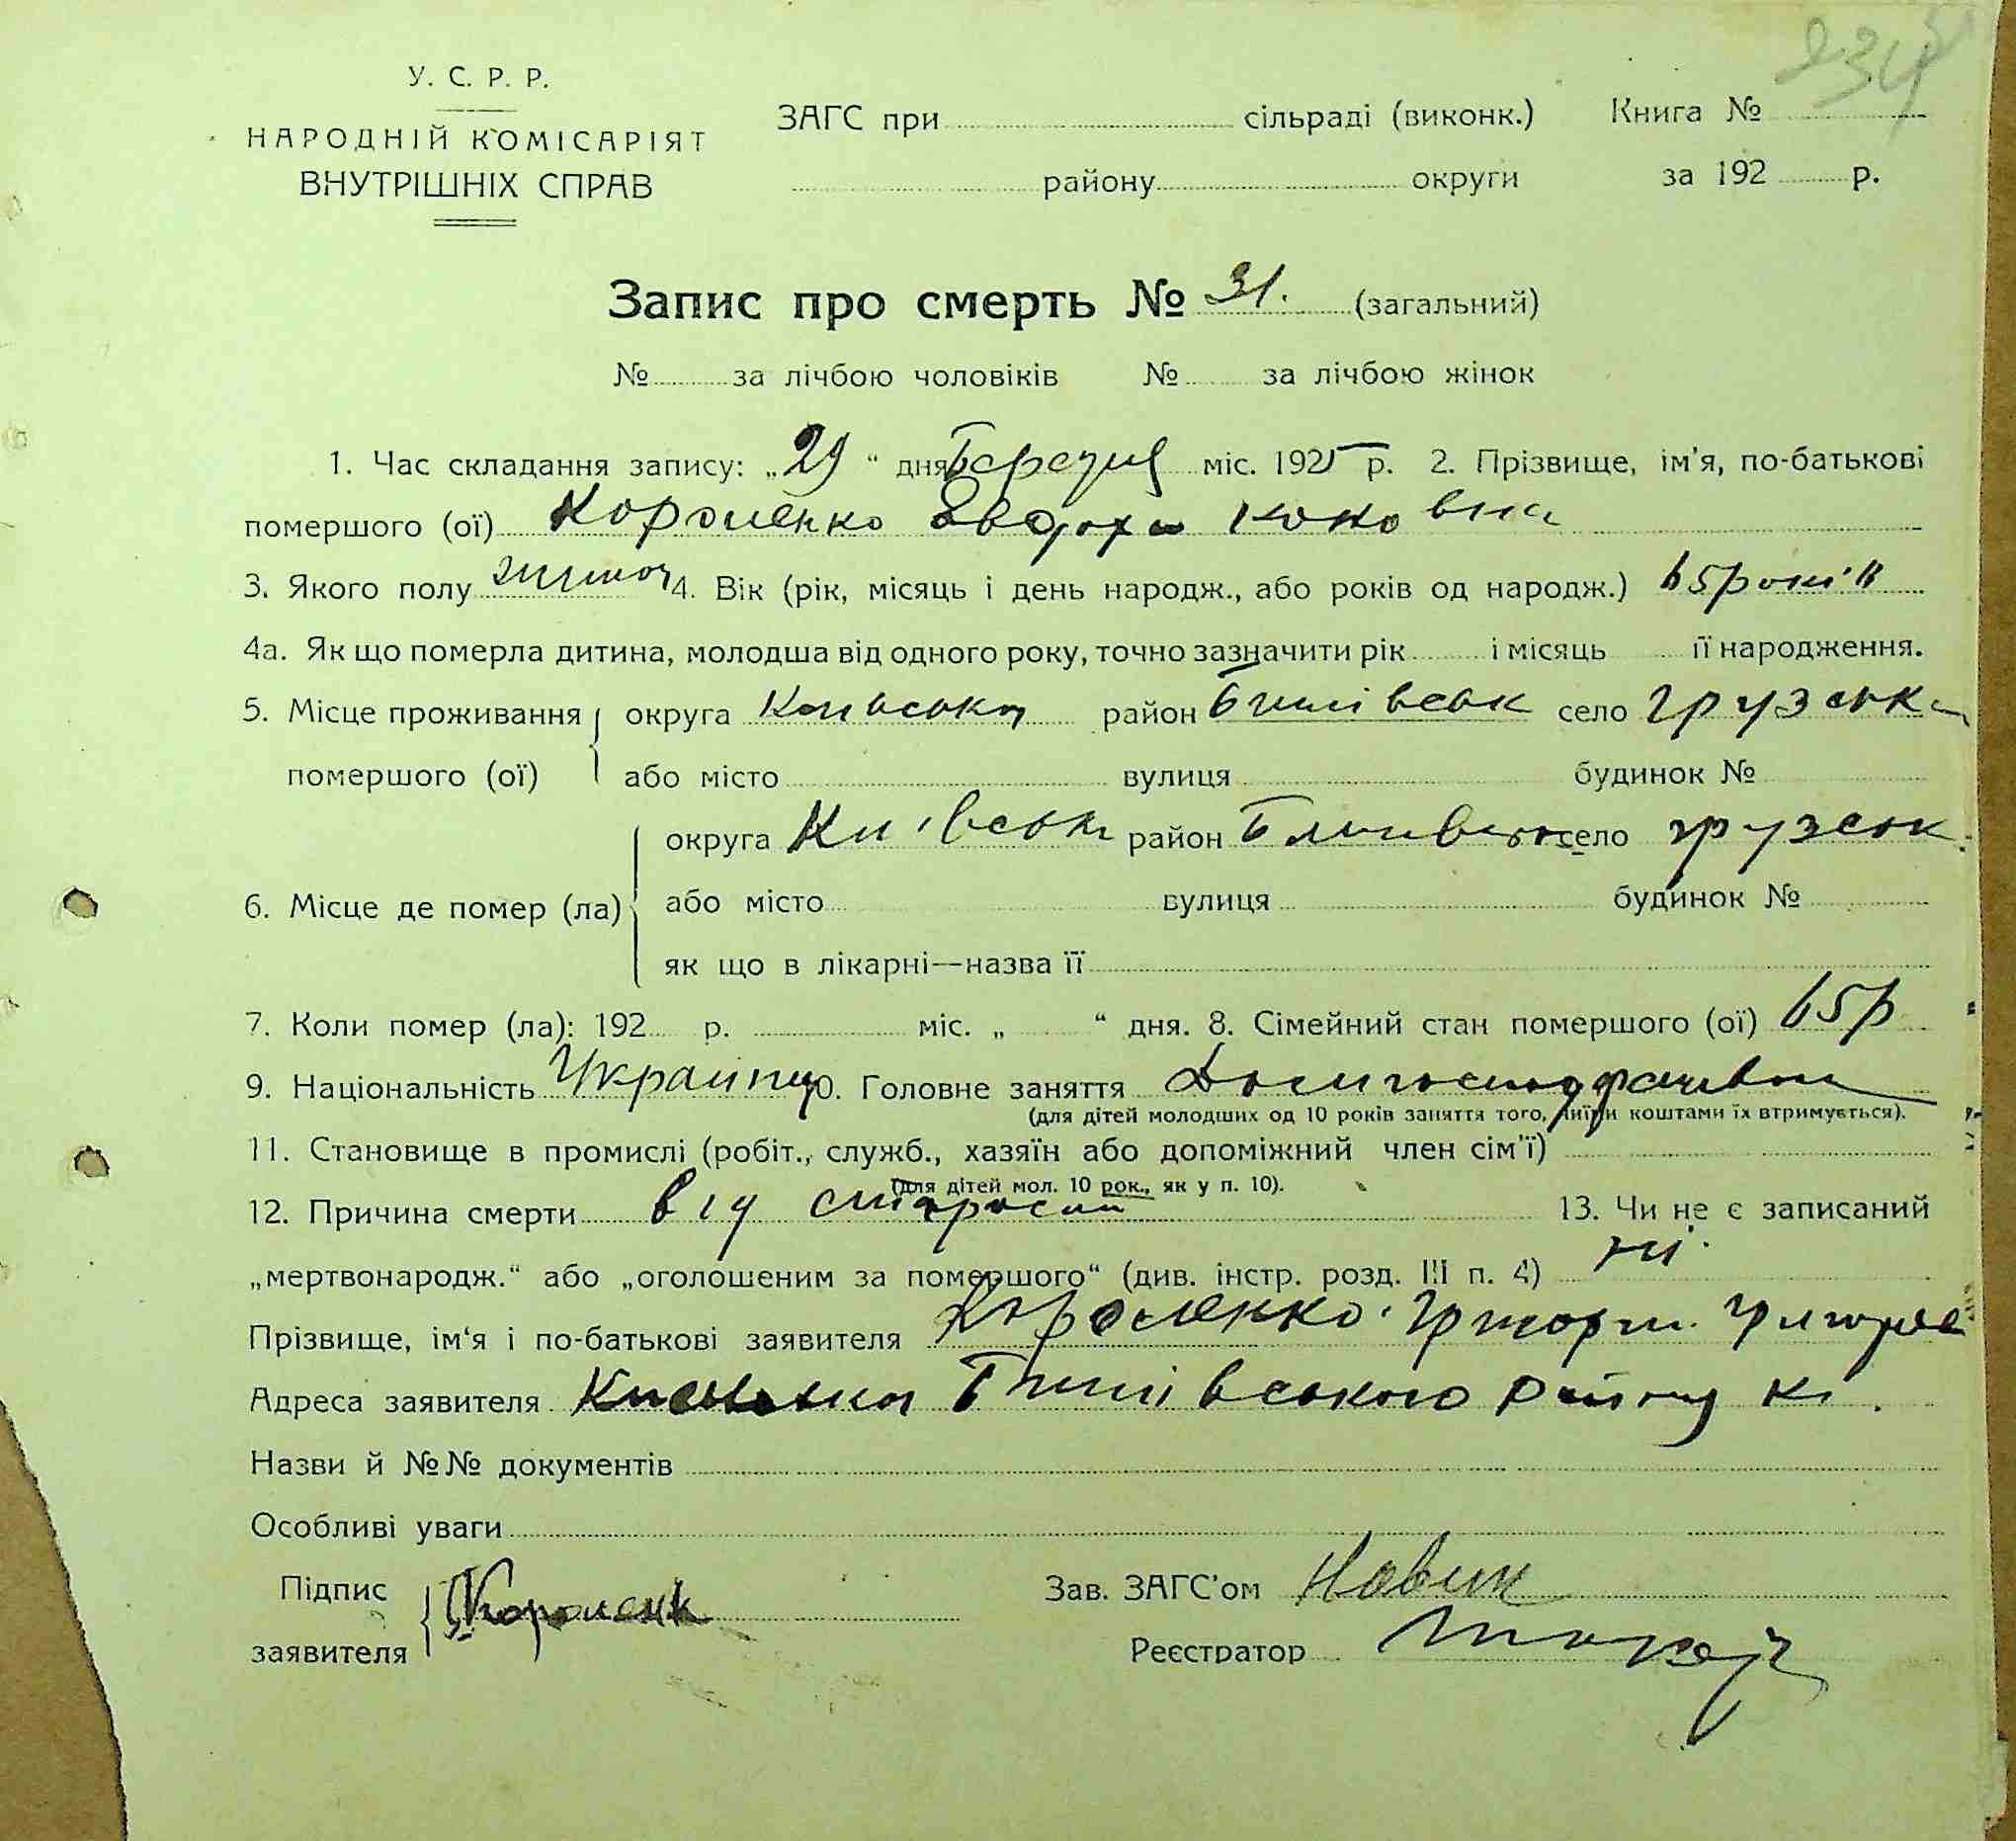 У. С. Р. Р.
НАРОДНІЙ КОМІСАРІЯТ
ВНУТРІШНІХ СПРАВ
ЗАГС при сільраді (виконк.)
району округи
Книга №
за 192 р.
234
Запис про смерть № 31. (загальний)
№ за лічбою чоловіків № за лічбою жінок
1. Час складання запису: „29“ дня Березня міс. 1925 р. 2. Прізвище, ім'я, по-батькові
помершого (ої) Короленко
3. Якого полу 4. Вік (рік, місяць і день народж., або років од народж.) 65 років
4а. Як що померла дитина, молодша від одного року, точно зазначити рік і місяць її народження.
5. Місце проживання округа район село Грузька
помершого (ої) або місто вулиця будинок №
округа Київськ район село грузськ
6. Місце де помер (ла) або місто вулиця будинок №
як що в лікарні—назва її
7. Коли помер (ла): 192 р. міс. „ “ дня. 8. Сімейний стан помершого (ої) 65 р
9. Національність 10. Головне заняття
(для дітей молодших од 10 років заняття того, чиїми коштами їх втримується).
11. Становище в промислі (робіт., служб., хазяїн або допоміжний член сім'ї)
(для дітей мол. 10 рок., як у п. 10).
12. Причина смерти від старости 13. Чи не є записаний
„мертвонародж.“ або „оголошеним за помершого“ (див. інстр. розд. III п. 4) ні.
Прізвище, ім'я і по-батькові заявителя Короленко
Адреса заявителя району
Назви й №№ документів
Особливі уваги
Підпис
заявителя
Зав. ЗАГС'ом
Реєстратор